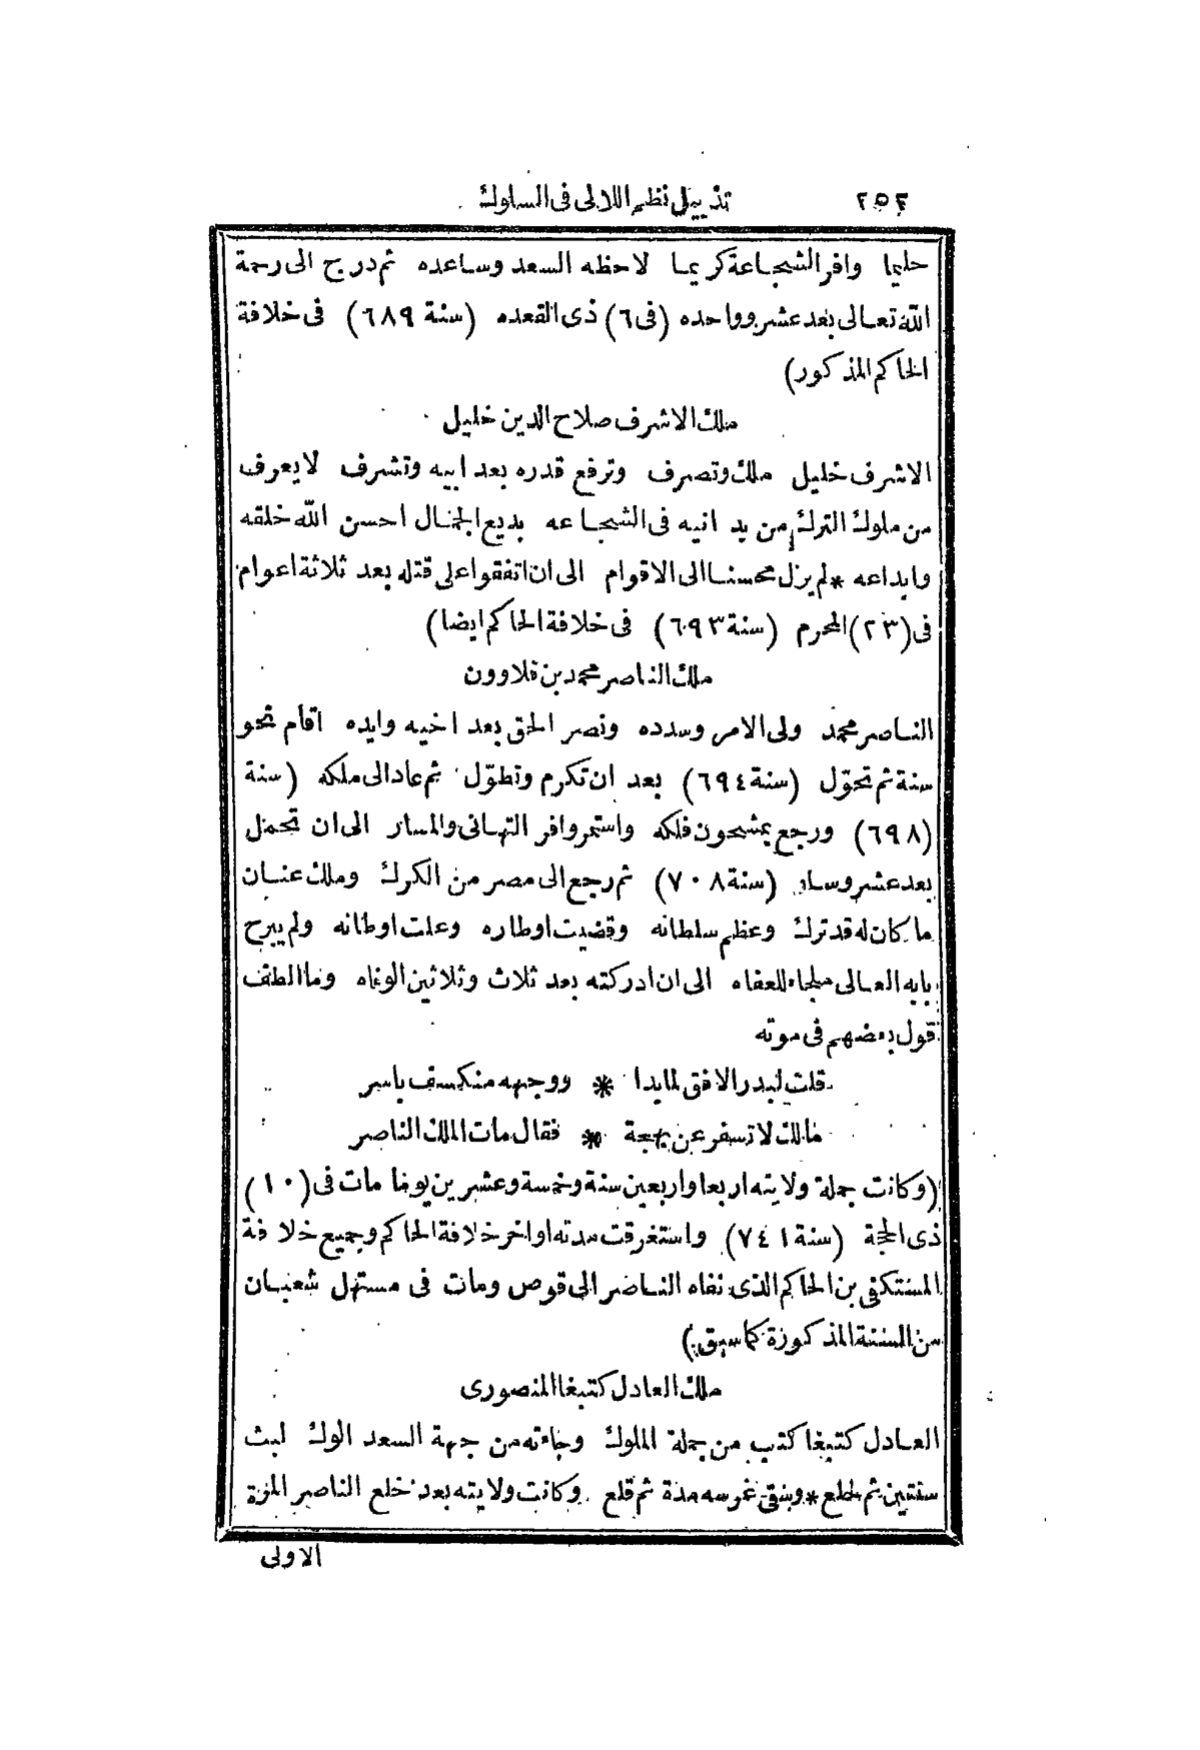 ٢٥٢ تذييل نظم اللالى فى السلوك
حليما وافر الشجاعة كريما لاحظه السعد وساعده ثم درج الى رحمة
الله تعالى بعد عشر وواحده (فى ٦) ذى القعده (سنة ٦٨٩) فى خلافة
الحاكم المذكور)
ملك الاشرف صلاح الدين خليل
الاشرف خليل ملك وتصرف وترفع قدره بعد ابيه وتشرف لا يعرف
من ملوك الترك من يدانيه فى الشجاعه بديع الجمال احسن الله خلقه
وابداعه * لم يزل محسنا الى الاقوام الى ان اتفقوا على قتله بعد ثلاثة اعوام
فى (٢٣) المحرم (سنة ٦٩٣) فى خلافة الحاكم ايضا)
ملك الناصر محمد بن قلاوون
الناصر محمد ولى الامر وسدده ونصر الحق بعد اخيه وايده اقام نحو
سنة ثم تحوّل (سنة ٦٩٤) بعد ان تكرم وتطوّل ثم عاد الى ملكه (سنة
(٦٩٨) ورجع بمشحون فلكه واستمر وافر التهانى والمسار الى ان تحمل
بعد عشر وسار (سنة ٧٠٨) ثم رجع الى مصر من الكرك وملك عنان
ما كان له قد ترك وعظم سلطانه وقضيت اوطاره وعلت اوطانه ولم يبرح
بابه العالى ملجاء للعفاه الى ان ادركته بعد ثلاث وثلاثين الوفاه وما الطف
قول بعضهم فى موته
قلت لبدر الافق لما بدا * ووجهه منكسف باسر
مالك لا تسفر عن بهجة * فقال مات الملك الناصر
(وكانت جملة ولايته اربعا واربعين سنة وخمسة وعشرين يوما مات فى (١٠)
ذى الحجة (سنة ٧٤١) واستغرقت مدته اواخر خلافة الحاكم وجميع خلافة
المستكفى بن الحاكم الذى نفاه الناصر الى قوص ومات فى مستهل شعبان
من السنة المذكورة كما سبق)
ملك العادل كتبغا المنصورى
العادل كتبغا كتب من جملة الملوك وجاءته من جهة السعد الوك لبث
سنتين ثم خلع * وبقى غرسه مدة ثم قلع وكانت ولايته بعد خلع الناصر المرة
الاولى